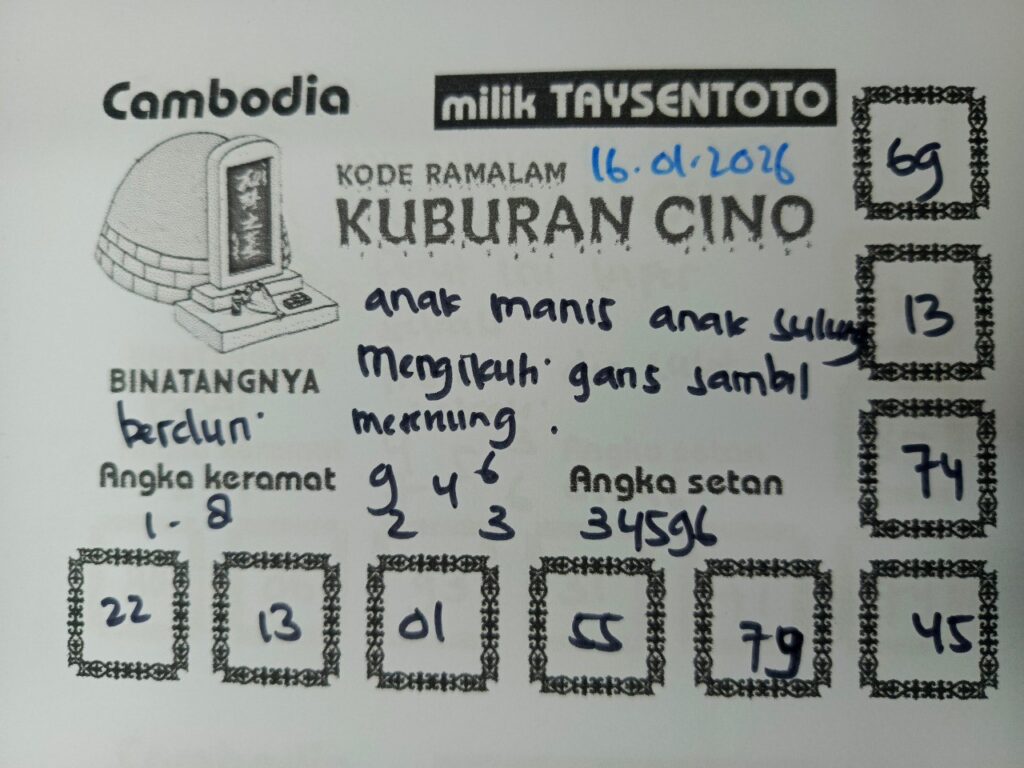 Cambodia
milik TAYSENTOTO
KODE RAMALAM 16.01.2026
KUBURAN CINO
anak manis anak sulung
mengikuti garis sambil
merenung.
BINATANGNYA
berduri
Angka keramat
1 - 8
9 4 6
2 3
Angka setan
34596
69
13
74
22 13 01 55 79 45